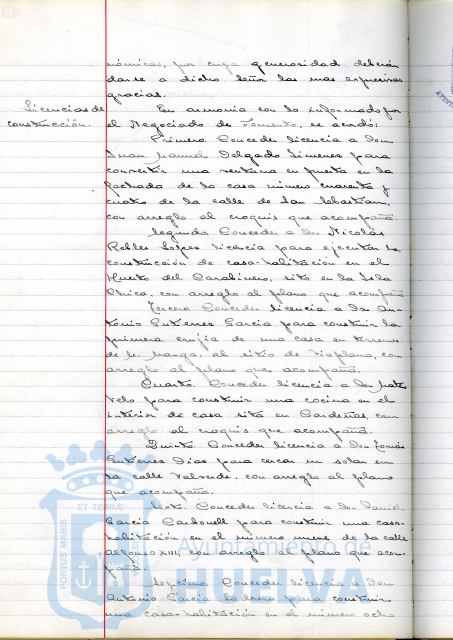 nómicas, por cuya generosidad deberán
darse a dicho señor las mas expresivas
gracias.
Licencias de construcción.
En armonia con lo informado por
el Negociado de Fomento, se acordó:
Primero. Conceder licencia a don
Juan Manuel Delgado Jimenez para
convertir una ventana en puerta en la
fachada de la casa número cuarenta y
cuatro de la calle de San Sebastian,
con arreglo al croquis que acompaña.
Segundo. Conceder a don Nicolás
Robles Lopez licencia para ejecutar la
construcción de casa-habitación en el
Huerto del Carabinero, sito en la Isla
Chica, con arreglo al plano que acompaña
Tercero. Conceder licencia a don An-
tonio Gutierrez Garcia para construir la
primera crujia de una casa en terrenos
de M. Manga, al sitio de Viaplana, con
arreglo al plano que acompaña.
Cuarto. Conceder licencia a don
para construir una cocina en el
interior de casa sita en Cardeñas, con
arreglo al croquis que acompaña.
Quinto. Conceder licencia a don Tomás
Gutierrez Dias para cercar un solar en
la calle Valverde, con arreglo al plano
que acompaña.
Sexto. Conceder licencia a don Daniel
Garcia Carbonell para construir una casa-
habitación en el número nueve de la calle
Alfonso XIII, con arreglo al plano que acom-
paña.
Septimo. Conceder licencia a don
Antonio Garcia para construir
una casa-habitación en el número ocho
PORTUS MARIS
ET TERRÆ
Ayuntamiento de
HUELVA